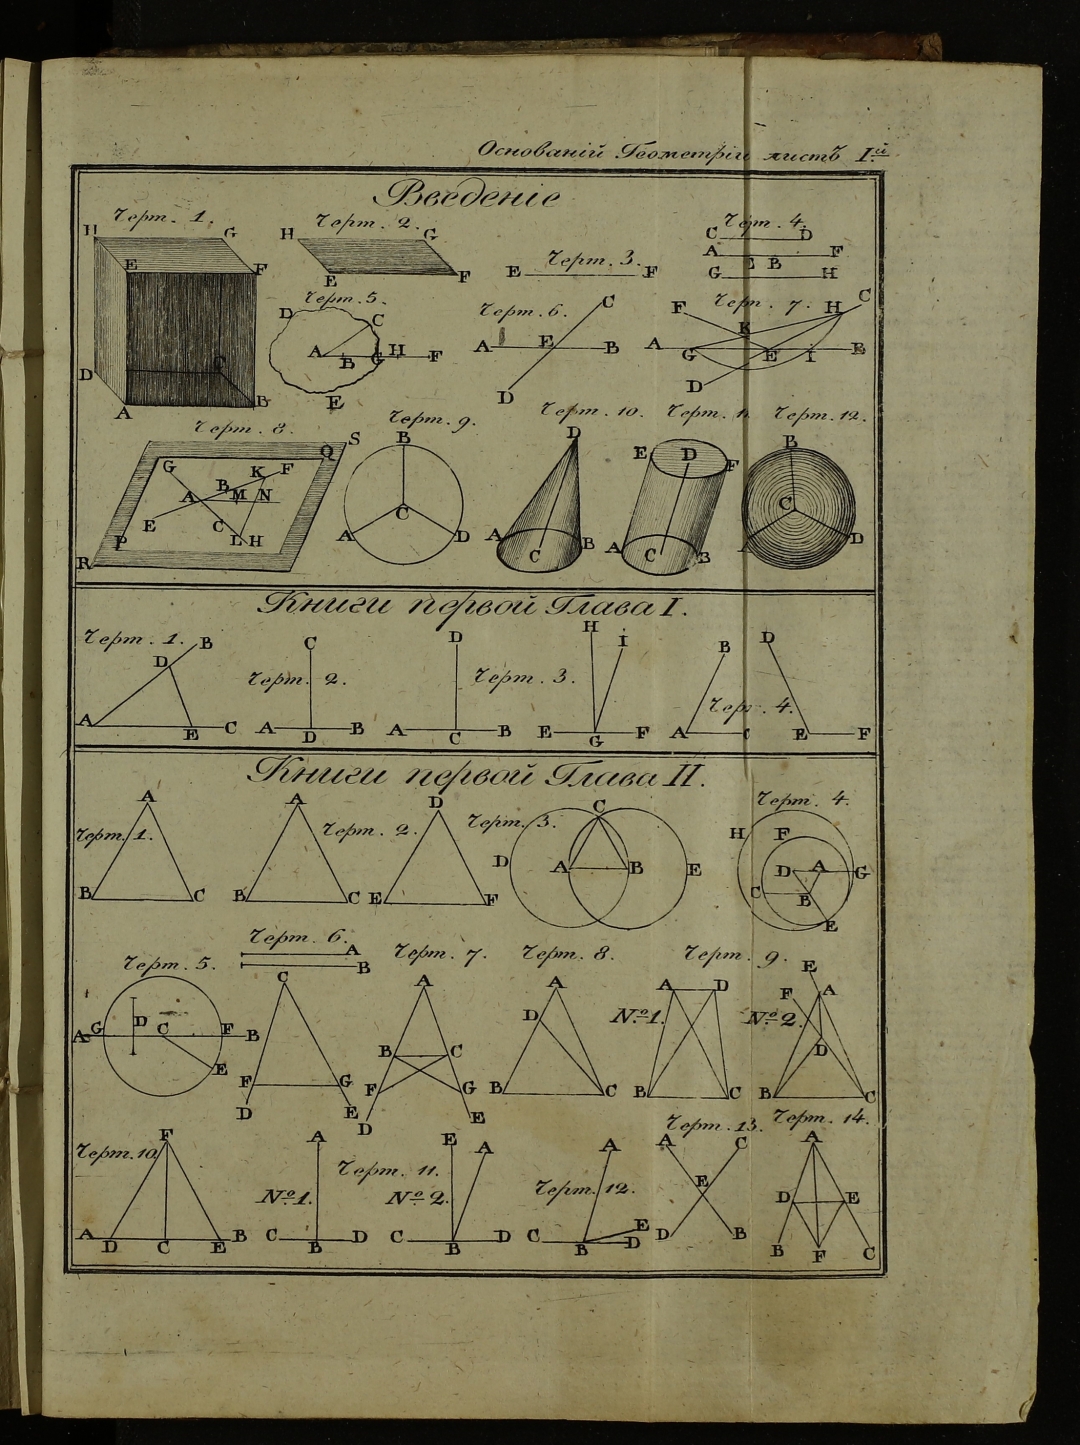 Основаній Геометріи листъ I.й
Введеніе
Черт. 1. Черт. 2. Черт. 3. Черт. 4.
H G H G C D
E F E F E F A E B F
G H
Черт. 5. Черт. 6. Черт. 7.
D C C F H C
A B G H F A E B A G K E I B
E D D
D C
A B
Черт. 8. Черт. 9. Черт. 10. Черт. 11. Черт. 12.
S Q B D E D F B
G K F
A B M N C C
E C A D A C B A C B D
P L H
R
Книги первой Глава I.
Черт. 1. B C D H I B D
D Черт. 2. Черт. 3. Черт. 4.
A E C A D B A C B E G F A E F
Книги первой Глава II.
A A D C Черт. 4.
Черт. 1. Черт. 2. Черт. 3. H F
D A B E D A G
B C B C E F C B
E
Черт. 5. Черт. 6. A Черт. 7. Черт. 8. Черт. 9. E
B
C A A A D F A
A G D C F B D No. 1. No. 2.
E B C D
F G F G B C B C B C
D E D E
Черт. 13. Черт. 14.
F A E A A A C A
Черт. 10. Черт. 11.
No. 1. No. 2. Черт. 12. E D E
A D C E B C B D C B D C B D E D B B F C